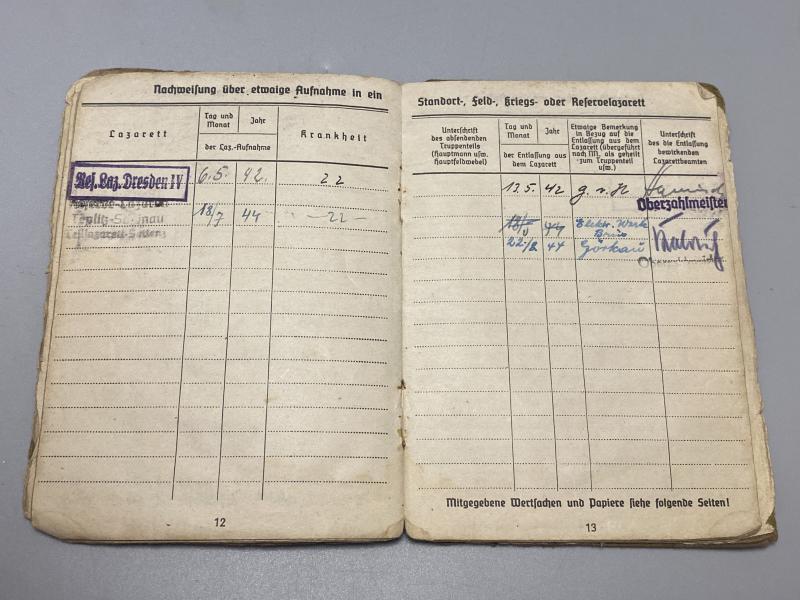 Nachweisung über etwaige Aufnahme in ein
Lazarett
Tag und Monat
Jahr
der Laz.-Aufnahme
Krankheit
Res. Laz. Dresden IV
6.5. 42. 22
Teplitz-Schönau
18/7 44 -22-
12
Standort-, Feld-, Kriegs- oder Reservelazarett
Unterschrift
des absendenden
Truppenteils
(Hauptmann usw.
Hauptfeldwebel)
Tag und Monat
Jahr
der Entlassung aus
dem Lazarett
Etwaige Bemerkung
in Bezug auf die
Entlassung aus dem
Lazarett (übergeführt
nach NN, als geheilt
zum Truppenteil
usw.)
Unterschrift
des die Entlassung
bewirkenden
Lazarettbeamten
13.5. 42 g. v. H
Oberzahlmeister
44 Elektr. Werk
Brüx
22/8 44 Görkau
Mitgegebene Wertsachen und Papiere siehe folgende Seiten!
13